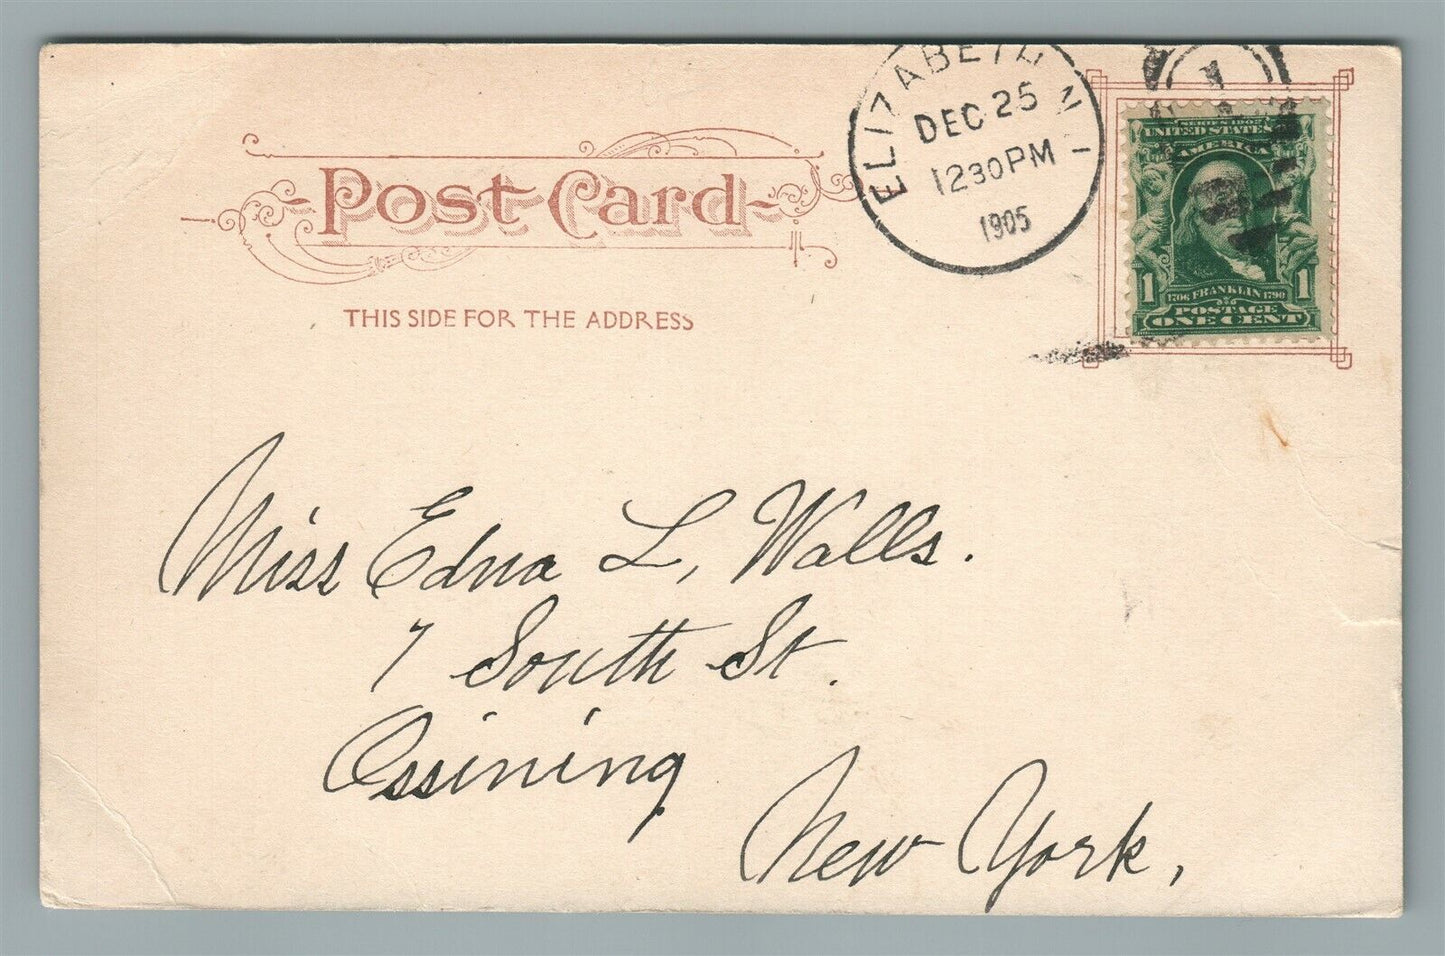 ELIZABETH N J
DEC 25
1230 PM
1905
1
SERIES 1902
UNITED STATES
AMERICA
1 1706 FRANKLIN 1790 1
POSTAGE
ONE CENT
Post Card
THIS SIDE FOR THE ADDRESS
Miss Edna L, Walls.
7 South St.
Ossining
New York,